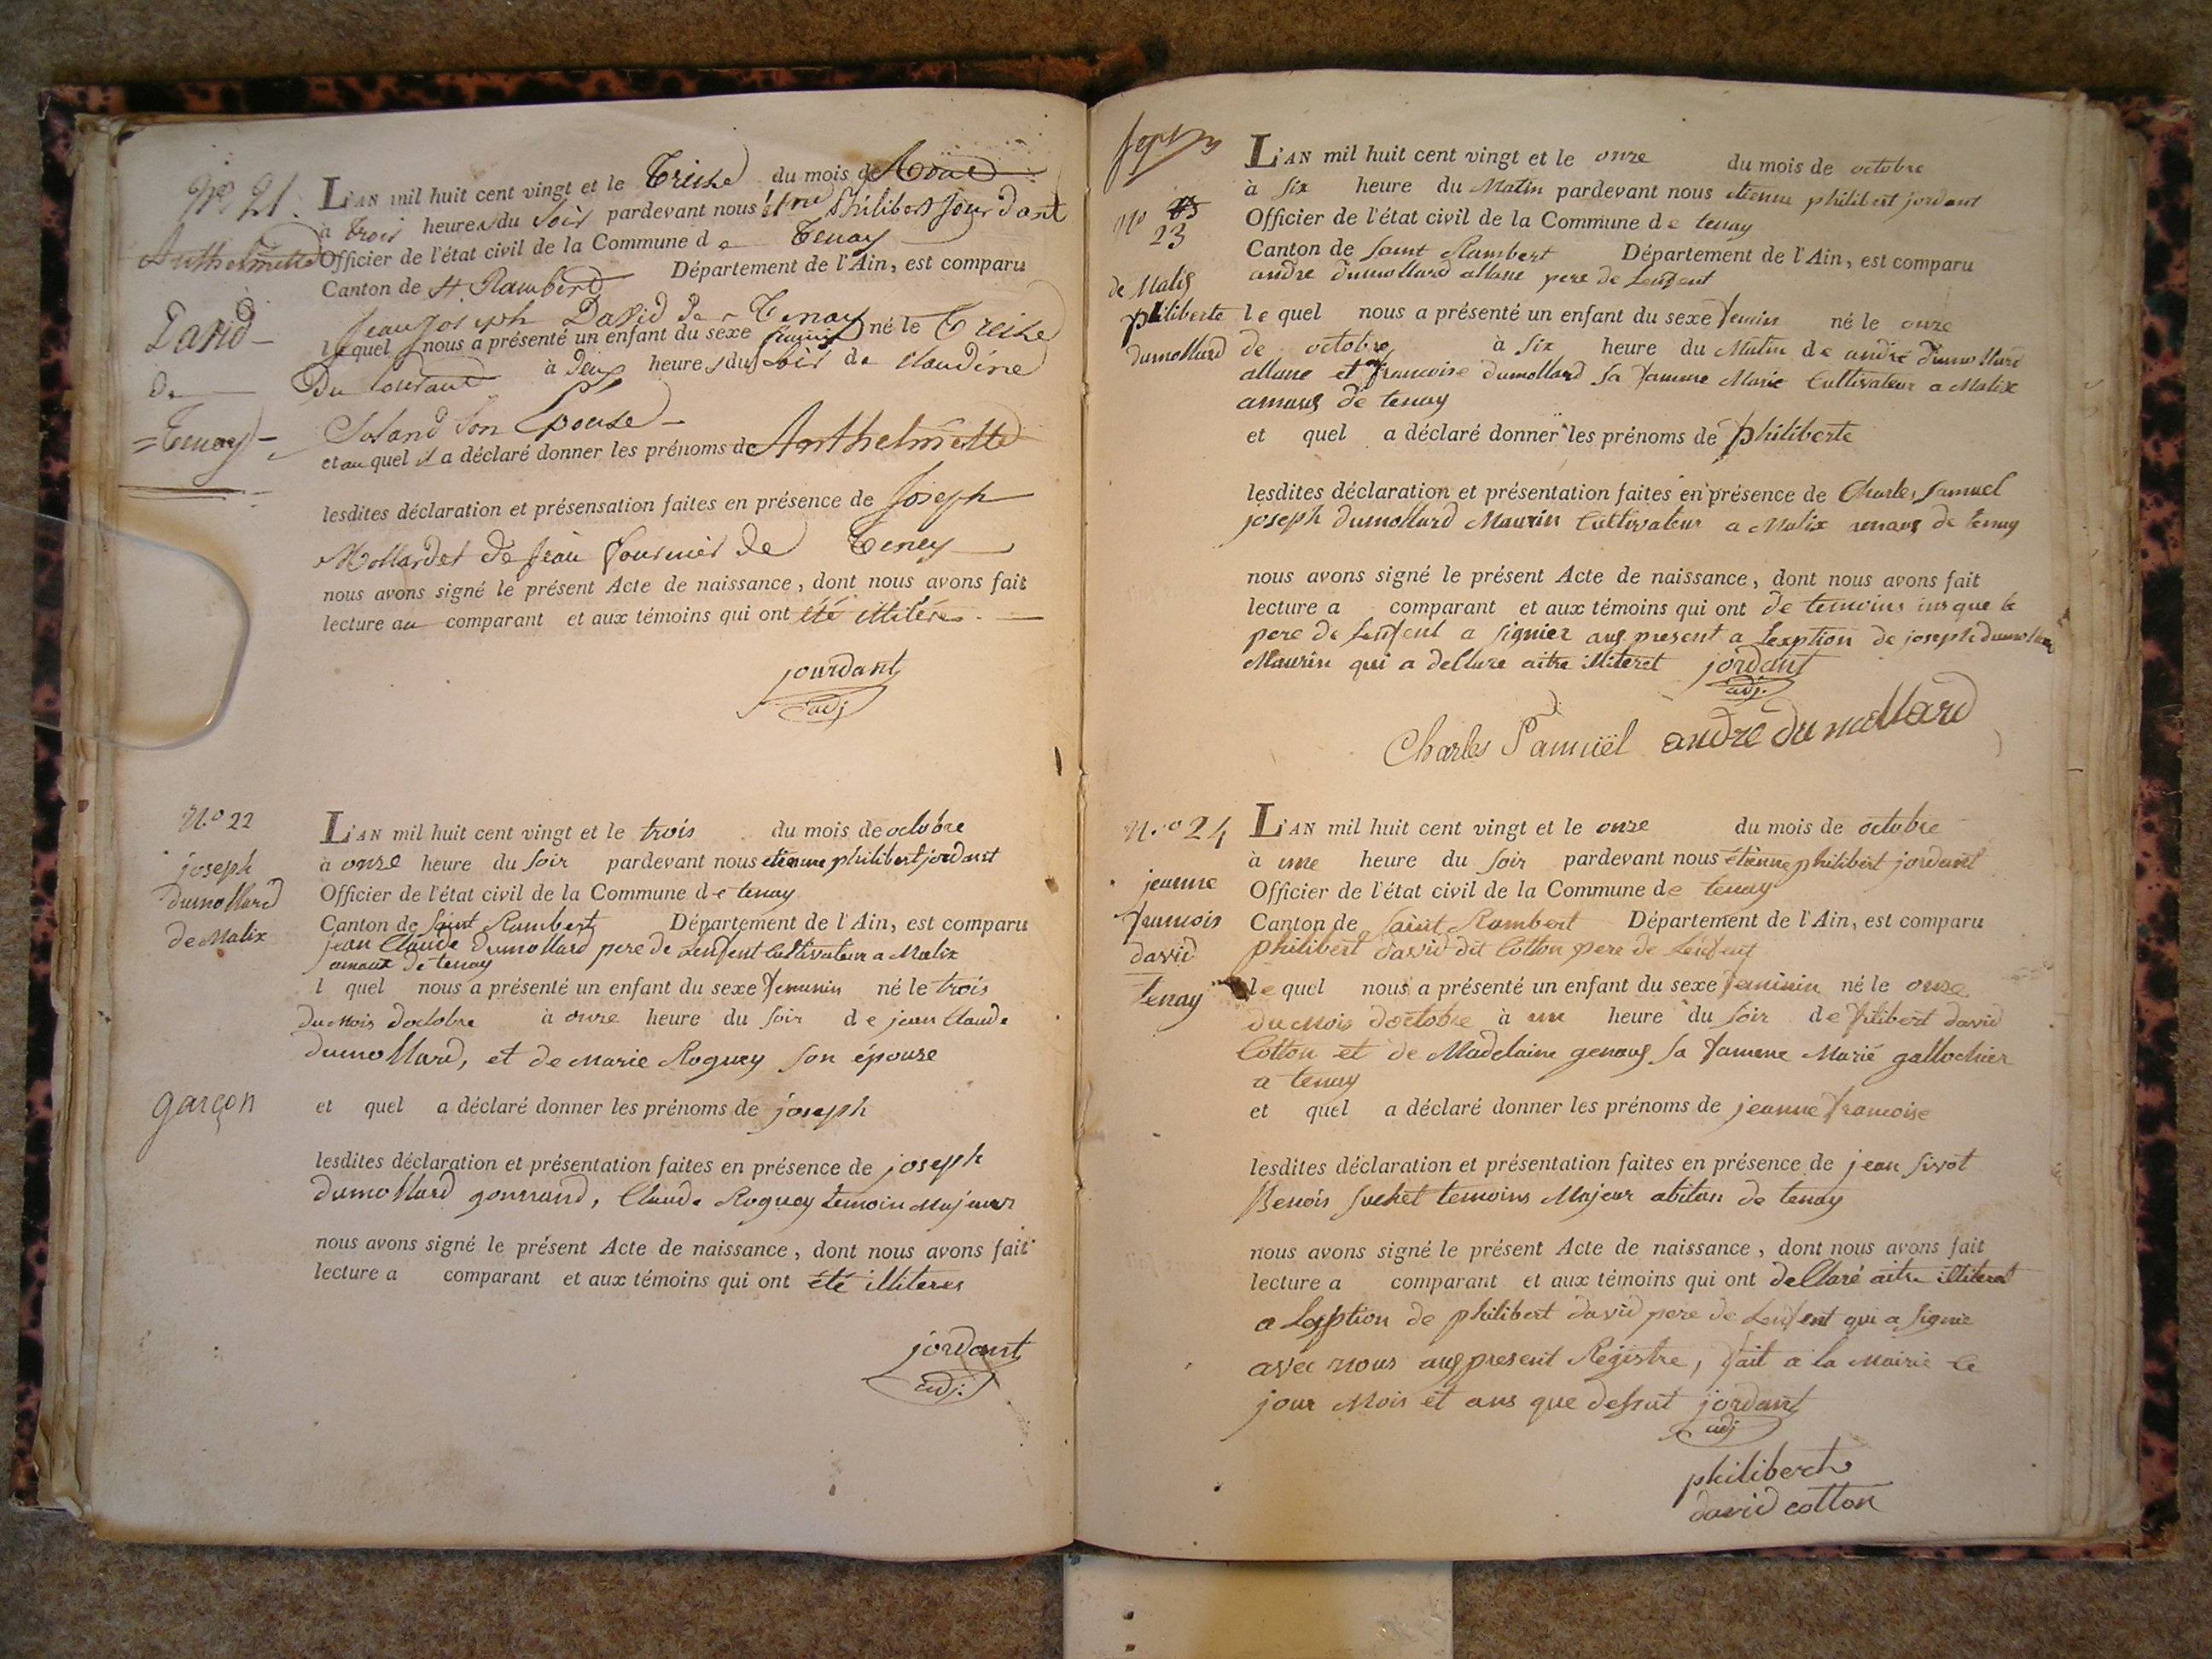 N.º 21.
Anthelmette
David
de
Tenay
L'AN mil huit cent vingt et le Treize du mois de Aout
à trois heures du Soir pardevant nous Etne Philibert Jourdant
Officier de l'état civil de la Commune de Tenay
Canton de St. Rambert Département de l'Ain, est comparu
Jean Joseph David de Tenay
lequel nous a présenté un enfant du sexe né le Treize
Du Courant à Deux heures du Soir de Claudine
Soland Son Epouse
et au quel il a déclaré donner les prénoms de Anthelmette
lesdites déclaration et présensation faites en présence de Joseph
Mollardet De Jean fournier De Teney
nous avons signé le présent Acte de naissance, dont nous avons fait
lecture au comparant et aux témoins qui ont été illitéres.
jourdant
adj
N.º 22
joseph
dumollard
de Malix
garçon
L'AN mil huit cent vingt et le trois du mois de octobre
à onze heure du soir pardevant nous etienne philibert jordant
Officier de l'état civil de la Commune de tenay
Canton de Saint Rambert Département de l'Ain, est comparu
jean Claude dumollard pere de Lenfent Cultivateur a Malix
amaux de tenay
l quel nous a présenté un enfant du sexe femunin né le trois
du mois doctobre à onze heure du soir de jean Claude
dumollard, et de marie Roguey son épouse
et quel a déclaré donner les prénoms de joseph
lesdites déclaration et présentation faites en présence de joseph
dumollard gonnand, Claude Roguey temoin Majeur
nous avons signé le présent Acte de naissance, dont nous avons fait
lecture a comparant et aux témoins qui ont été illiteres
jordant
adj.
Nº 23
de Malis
philiberte
dumollard
L'AN mil huit cent vingt et le onze du mois de octobre
à six heure du Matin pardevant nous etienne philibert jordant
Officier de l'état civil de la Commune de tenay
Canton de Saint Rambert Département de l'Ain, est comparu
andre dumollard allane pere de Lenfent
le quel nous a présenté un enfant du sexe femin né le onze
de octobre à six heure du Matin de andré dumollard
allane et francoise dumollard sa famme Marie Cultivateur a Malix
amaux de tenay
et quel a déclaré donner les prénoms de philiberte
lesdites déclaration et présentation faites en présence de Charles Samuel
joseph dumollard Maurin Cultivateur a Malix amaux de tenay
nous avons signé le présent Acte de naissance, dont nous avons fait
lecture a comparant et aux témoins qui ont de temoins insque le
pere de Lenfent a signier aux present a Lexption de joseph dumollard
Maurin qui a dellare aitre illiteret jordant
adj.
Charles Samuël andre du mollard
N.º 24
jeanne
francois
david
tenay
L'AN mil huit cent vingt et le onze du mois de octobre
à une heure du soir pardevant nous etienne philibert jordant
Officier de l'état civil de la Commune de tenay
Canton de Saint Rambert Département de l'Ain, est comparu
philibert david dit Cotton pere de Lenfent
le quel nous a présenté un enfant du sexe feminin né le onze
du mois doctobre à un heure du soir de filibert david
Cotton et de Madelaine genaux sa famme Marié gallochier
a tenay
et quel a déclaré donner les prénoms de jeanne francoise
lesdites déclaration et présentation faites en présence de jean sivot
Benois suchet temoins Majeur abitan de tenay
nous avons signé le présent Acte de naissance, dont nous avons fait
lecture a comparant et aux témoins qui ont dellaré aitre illiteret
a Lexption de philibert david pere de Lenfent qui a signié
avec nous aux present Registre, fait a la Mairie le
jour Mois et ans que dessut jordant
adj
philibert
david cotton